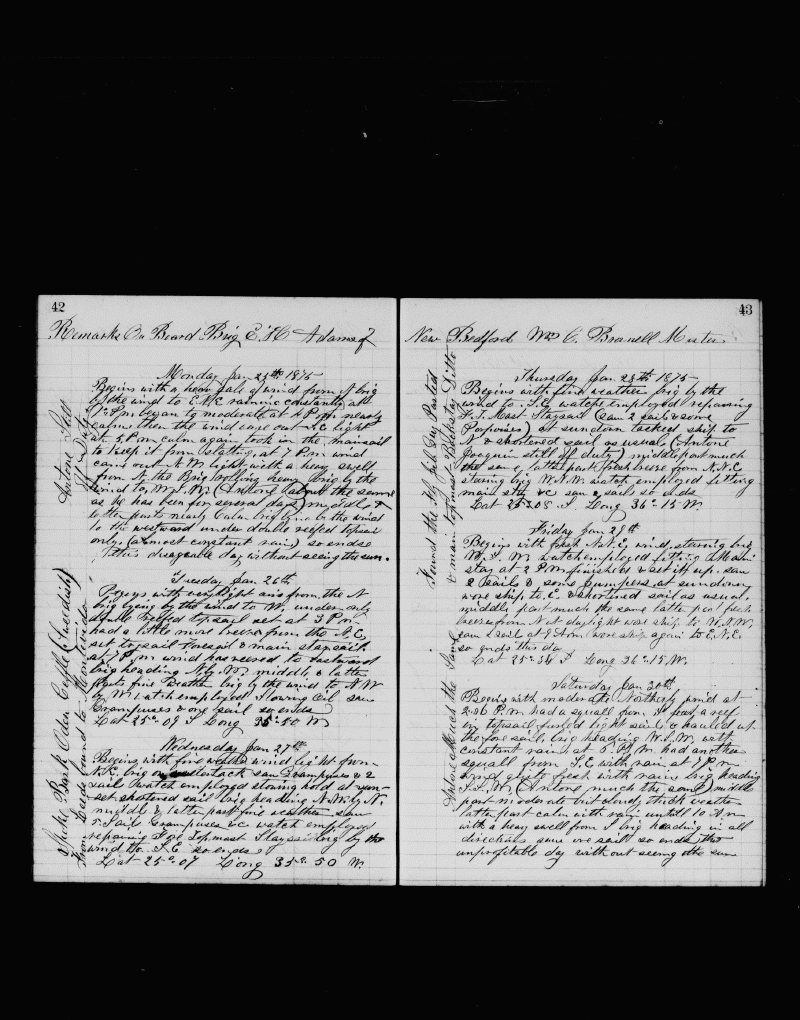 42
Remarks On Board Brig E. H. Adams of
Monday Jan 25th 1875
Begins with a heavy gale of wind from N brig
by the wind to E.N.E raining constantly at
P.m began to moderate at 4 P.m nearly
calm then the wind came out S.E light
at 5 P.m calm again took in the mainsail
to keep it from slatting, at 7 P.m wind
came out N.W light with a heavy swell
from N. the Brig rolling heavy brig by the
wind to W.S.W. (Antone about the same
as he has been for several days) middle &
latter parts nearly Calm brig lying by the wind
to the westward under double reefed topsail
only. (almost constant rain) so ends
this disagreable day without seeing the sun.
Antone Still
Off Duty
Tuesday Jan. 26th
Begins with very light airs from the N
brig lying by the wind to W. under only
double reefed topsail set at 3 P.m
had a little more breeze from the N.E,
set topsail foresail & main staysail
at 7 P.m wind has veered to eastward
brig heading N by W. middle & latter
parts fine weather brig by the wind to N.W
by W. watch employed stowing Oil saw
Grampuses & one sail so ends
Lat 25°.09 S Long 35°.50 W
Wednesday Jan 27th
Begins with fine weather wind light from
N.E. brig on tack saw Grampuses & 2
sail watch employed stowing hold at sun-
set shortened sail brig heading N.N.W by N.
middle & latter part fine weather saw
5 Sail Grampuses &c watch employed
repairing Fore topmast Staysail brig by the
wind to S.E so ends
Lat 25°.07 Long 35°.50 W.
Spoke Bark Oden (Swedish)
From bound to Montevideo
43
New Bedford Wm C. Brownell Master
Thursday Jan. 28th 1875
Begins with fine weather brig by the
wind to S.E. watch employed repairing
F.T. Mast Staysail (saw 2 sail & some
Porpoises) at sundown tacked ship to
N & shortened sail as usual (Antone
Joaquin still off duty) middle part much
the same, latter part fresh breeze from N.N.E
steering brig W.S.W watch employed fitting
main stay &c saw 2 sail so ends
Lat 25°.08 S. Long 36°.15 W
Found the Fly Jib Guy Parted
& main topmast Backstay Ditto
Friday Jan 29th
Begins with fresh N.E. wind, steering brig
W.S.W watch employed fitting Main
stay at 2 P.M. finished & set it up. saw
2 Sails & some Jumpers at sundown
wore ship to E. & shortened sail as usual.
middle part much the same latter part fresh
breeze from N at daylight wore ship to W.N.W.
saw 1 sail at 9 A.m wore ship again to E.N.E.
so ends this day
Lat 25°.34 S Long 36°.15 W.
Saturday Jan 30th
Begins with moderate Northerly wind at
2.30 P.m had a squall from S. put a reef
in topsail furled light sails & hauled up
the fore sail, brig heading W.S.W. with
constant rain at 5. P.m had another
squall from S.E with rain at 7 P.m
wind quite fresh with rain brig heading
S.S.W. (Antone much the same) middle
part moderate but cloudy thick weather
latter part calm with rain untill 10 A.m
with a heavy swell from S brig heading in all
directions saw one sail so ends this
unprofitable day without seeing the sun
Antone Much the Same